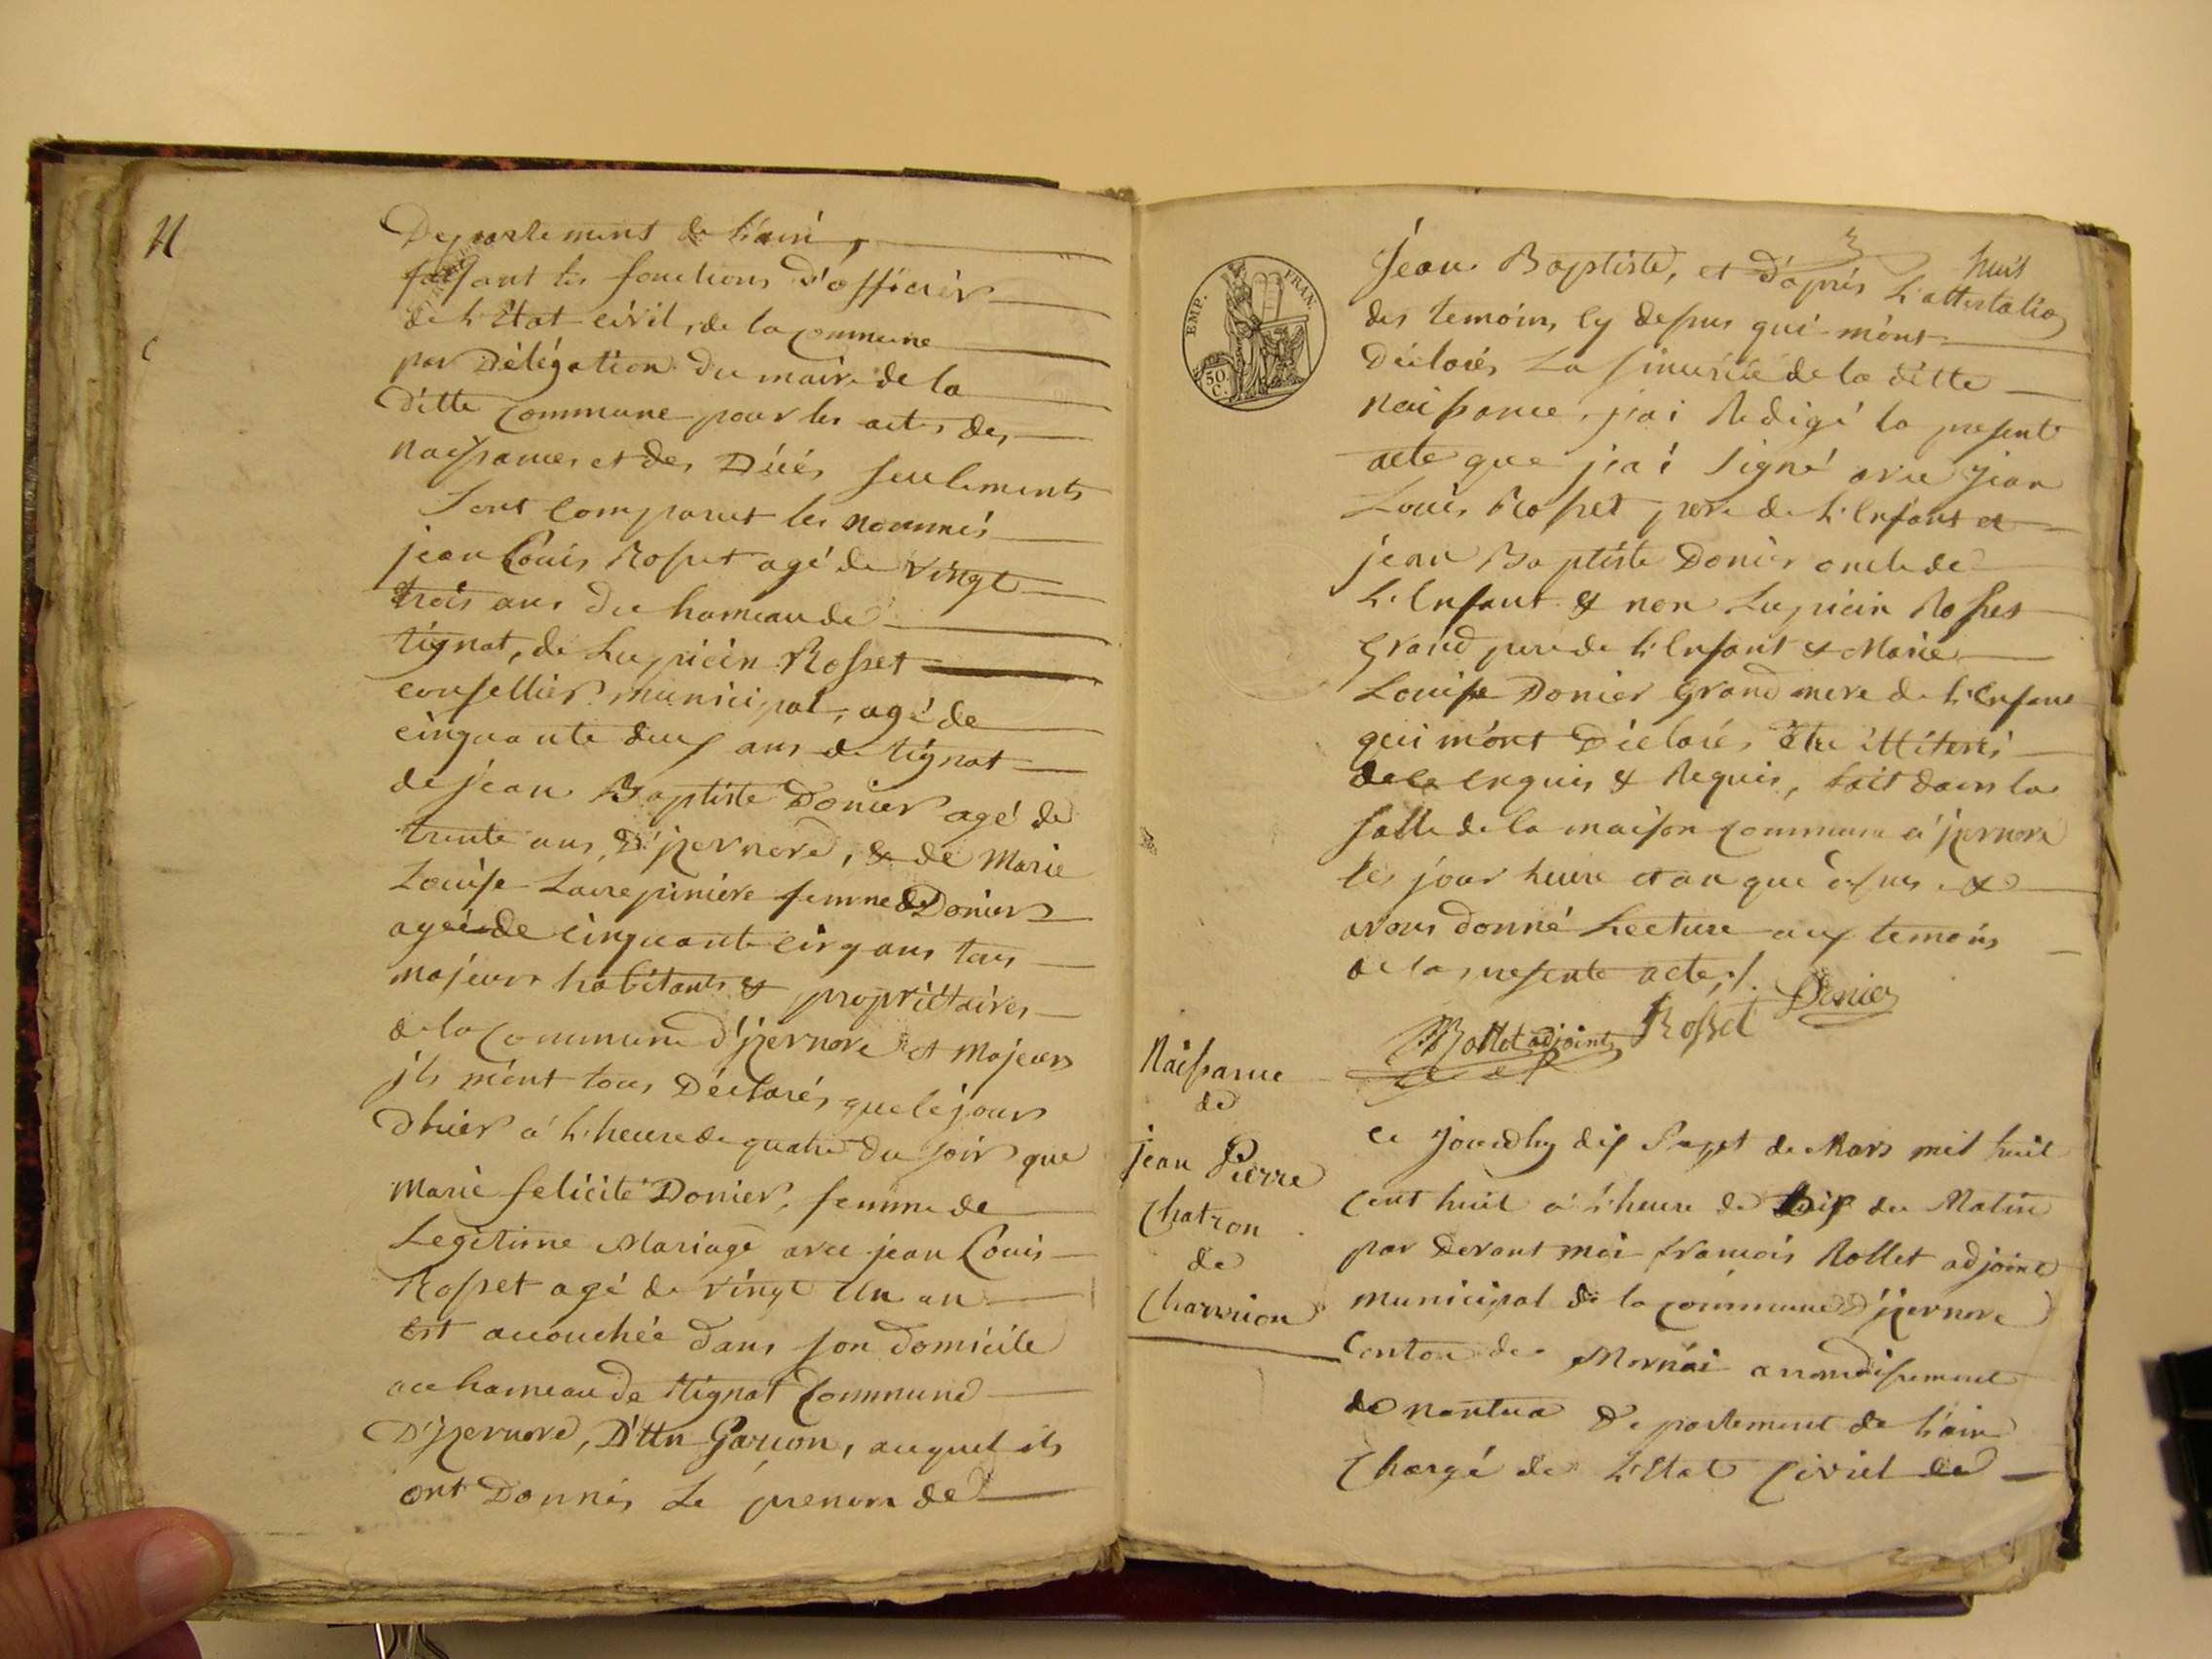 Departement de l'ain,
faisant les fonctions d'officier
de l'Etat civil, de la commune
par Délégation du maire de la
ditte commune pour les actes des
naissances et des Décés seulements
Sont comparut les nommés
jean Louis Rosset agé de vingt
trois ans du hameau de
tignat, de Lupicin Rosset
consellier municipal, agé de
cinquante deux ans de tignat
de jean Baptiste Donier agé de
trente ans, D'jzernore, & de Marie
Louise femme de Donier
agée de cinquante cinq ans tous
majeurs habitants & propriétaires
de la Commune d'jzernore et Majeurs
jls m'ont tous Déclarés que le jour
d'hier a l'heure de quatre du soir que
Marie felicité Donier, femme de
Legitime Mariage avec jean Louis
Rosset agé de vingt un an
est accouchée dans son domicile
au hameau de tignat Commune
D'jzernore, D'un Garcon, auquel ils
ont Donnés Le prenom de
huit
Jean Baptiste, et d'aprés L'attestation
des temoins cy dessus qui m'ont
Déclarés La sincérité de la ditte
naissance, j'ai Redigé la presente
acte que j'ai signé avec jean
Louis Rosset pere de L'Enfant et
jean Baptiste Donier oncle de
L'Enfant & non Lupicin Rosset
Grand pere de L'Enfant & Marie
Louise Donier Grand mere de L'Enfant
qui m'ont Déclarés être illiterés
de ce Enquis & Requis, fait dans la
salle de la maison commune d'jzernore
les jour heure et an que dessus &
avons donné Lecture aux temoins
de la presente acte ./.
Donier
Rollet adjoint Rosset
Naissance
de
jean Pierre
Chatron
de
Charvrion
EMP. FRAN.
50
C.
Ce jourdhuy dix Sept de Mars mil huit
Cent huit a L'heure de dix du Matin
par Devant moi francois Rollet adjoint
municipal de la commune D'jzernore
Canton de Mornai arrondissement
de nantua Departement de L'ain
Chargé de L'Etat Civiel de